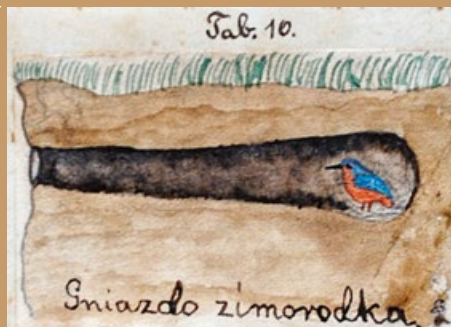 Tab. 10.
Gniazdo zimorodka.